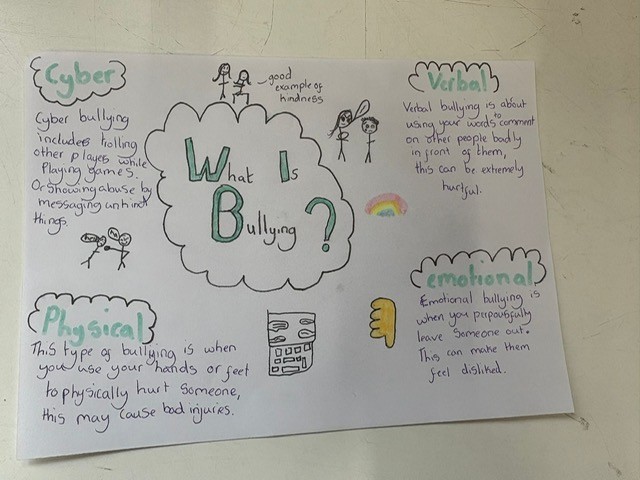 What Is
Bullying ?
good
example of
kindness
Cyber
Cyber bullying
includes trolling
other players while
Playing games.
Or showing abuse by
messaging unkind
things.
Verbal
Verbal bullying is about
using your words to comment
on other people badly
in front of them,
this can be extremely
hurtful.
Physical
This type of bullying is when
you use your hands or feet
to physically hurt someone,
this may cause bad injuries.
emotional
Emotional bullying is
when you purpousfully
leave someone out.
This can make them
feel disliked.